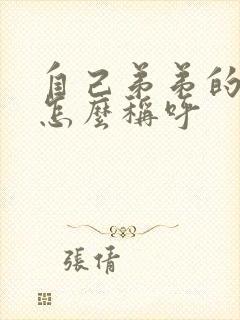 自己弟弟的
怎麼稱呼
張倩